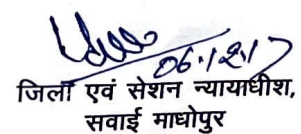 06.12.17
जिला एवं सेशन न्यायाधीश,
सवाई माधोपुर